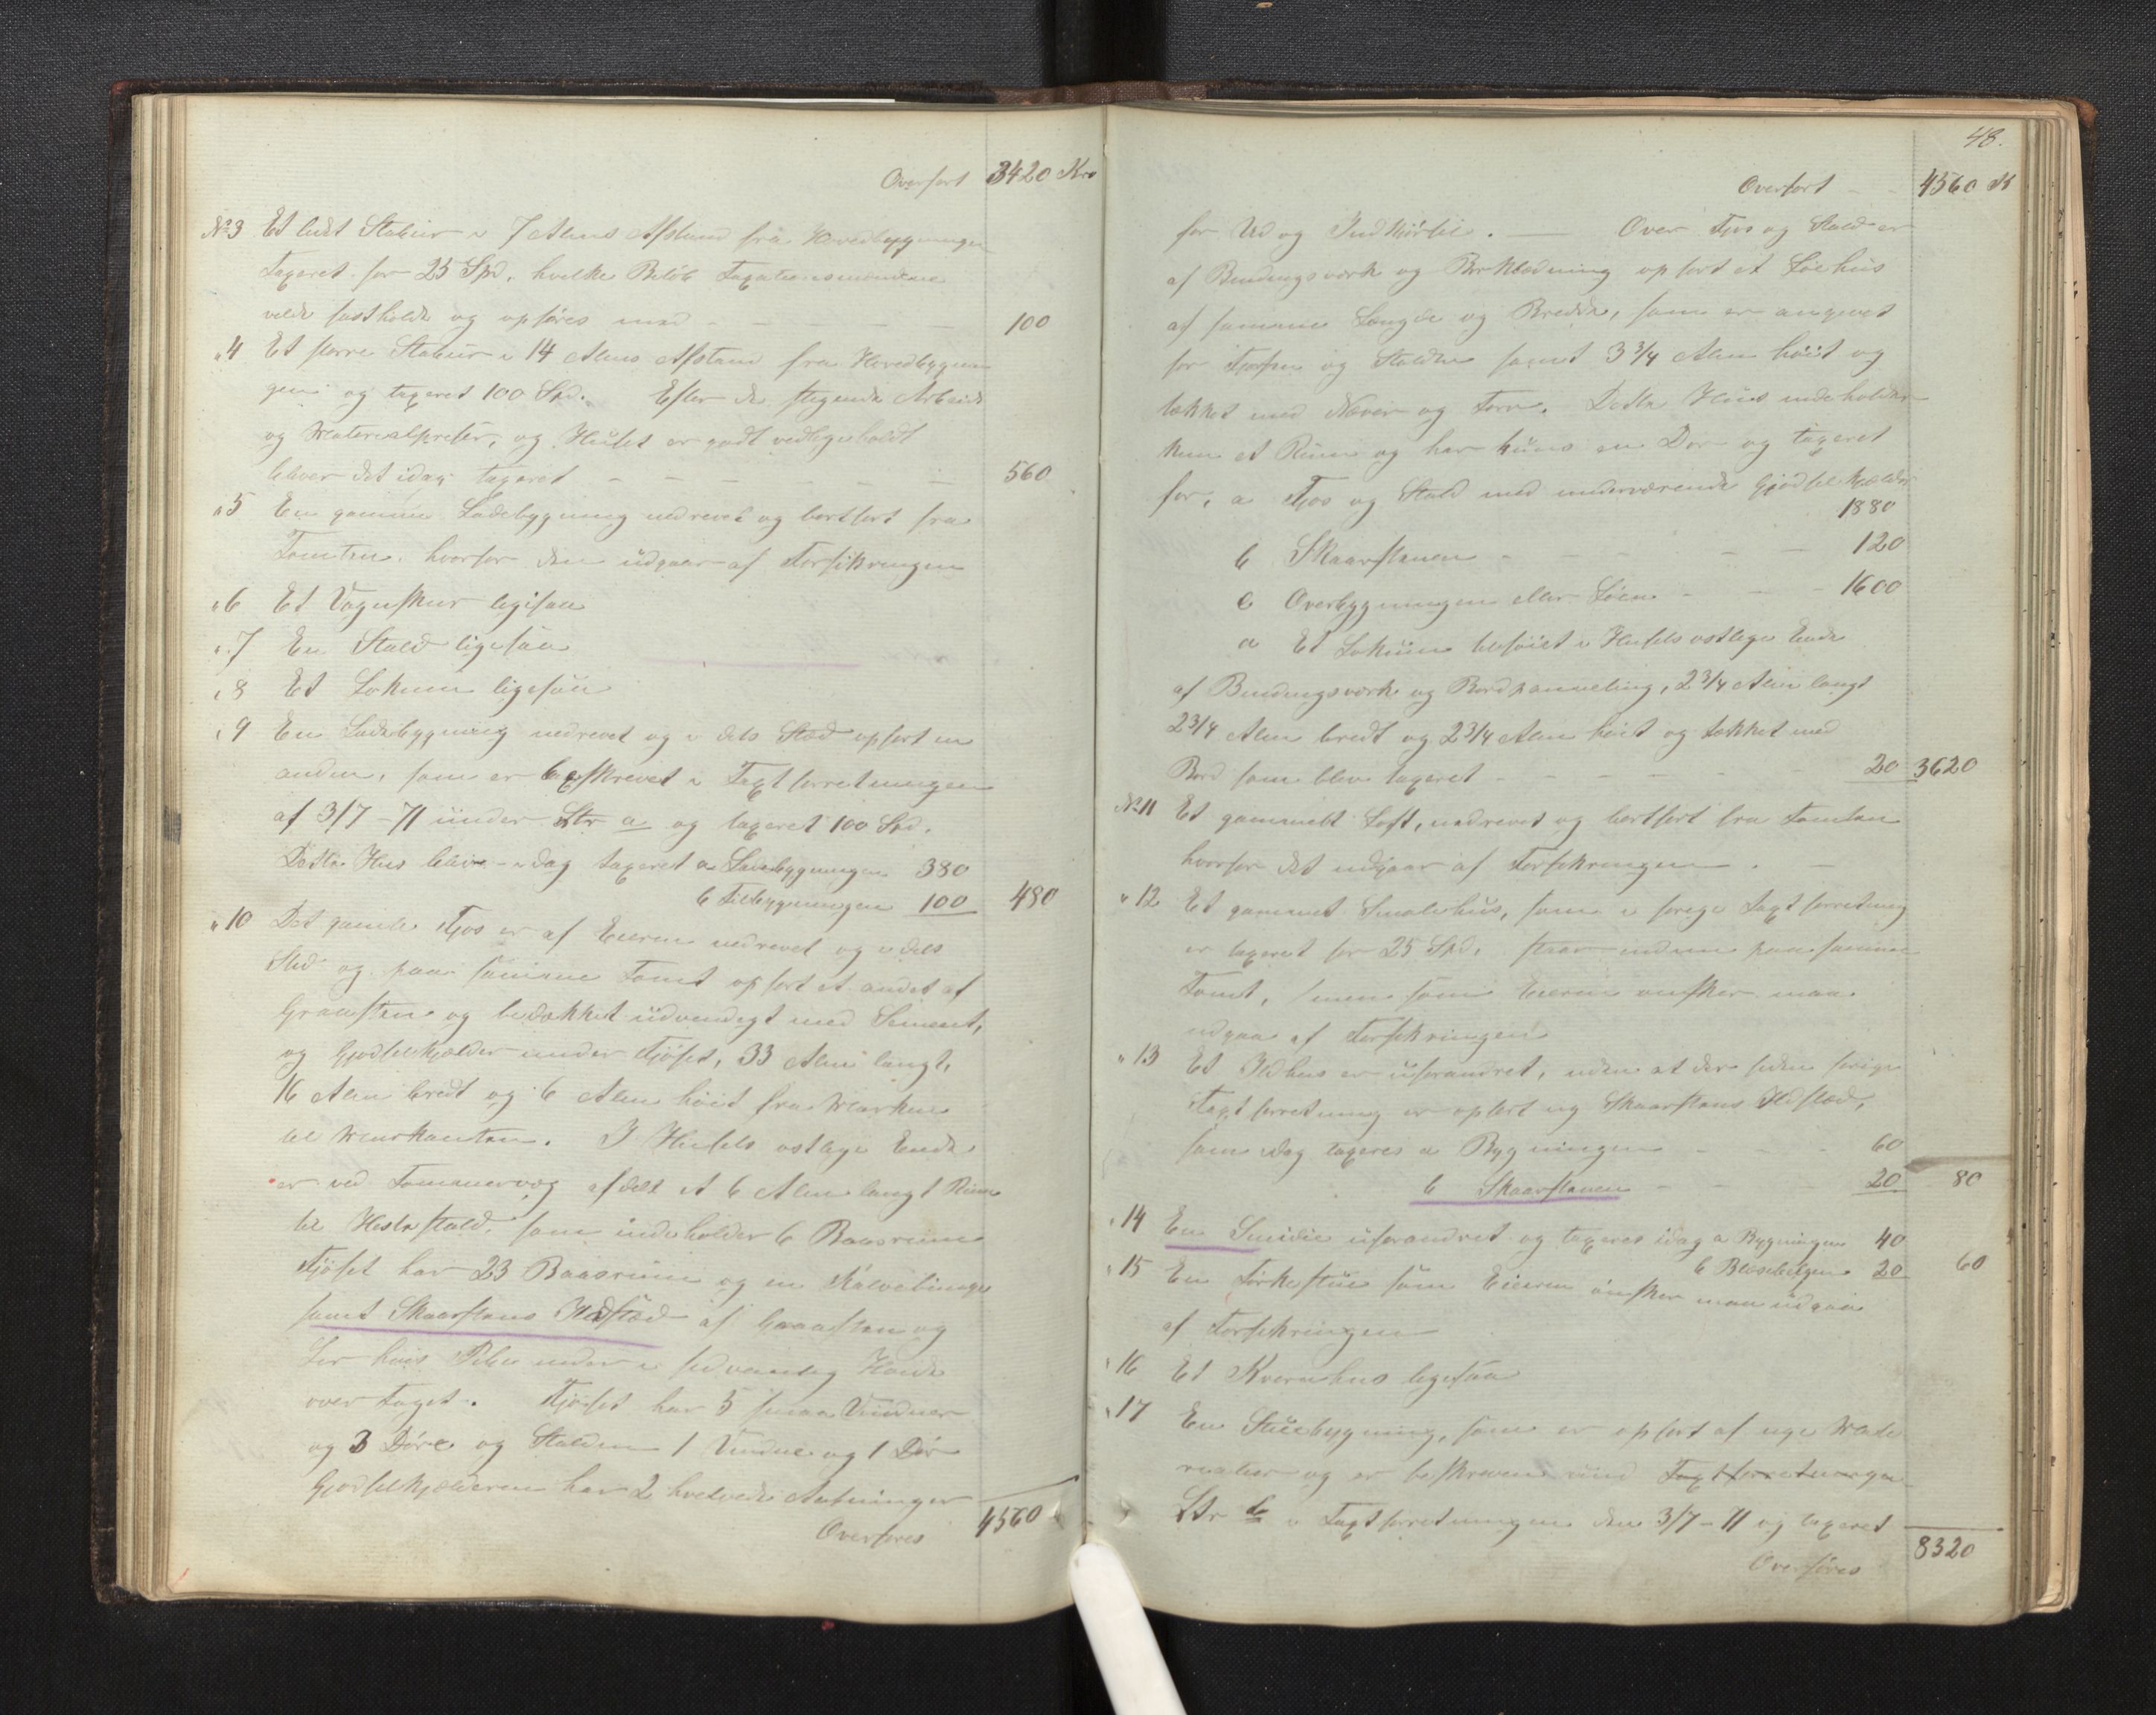 Overført 3420 Kro
No 3 Et lidet Stabur i 7 Alens Afstand fra Hovedbygningen
Taxeret for 25 Spd. hvilke Beløb Taxationsmændene
vilde fastholde og opføres med - - - - - 100
" 4 Et større Stabur i 14 Alens Afstand fra Hovedbygnin
gen og taxeret 100 Spd. Efter de stegende Arbeids
og Materialpriser, og Huset er godt vedligeholdt
bliver det idag taxeret - - - - - - 560
" 5 En gammel Ladebygning nedrevet og bortført fra
Tomten. hvorfor den udgaar af Forsikringen
" 6 Et Vognskur ligesaa
" 7 En Stald ligesaa
" 8 Et Lokum ligesaa
" 9 En Ladebygning nedrevet og i dets Sted opført en
anden, som er beskrevet i Taxtforretningen
af 3/7 - 71 under Litr a og taxeret 100 Spd.
Dette Hus bliver idag taxeret a Ladebygningen 380
b Tilbygningen 100 480
" 10 Det gamle Fjøs er af Eieren nedrevet og i dets
Sted og paa samme Tomt opført et andet af
Graasten og bedækket udvendigt med Sement,
og Gjødselkjælder under Fjøset, 33 Alen langt,
16 Alen bredt og 6 Alen høit fra Marken
til Murkanten. I Husets østlige Ende
er ved Tømmervæg afdelt et 6 Alen langt Rum
til Hestestald, som indeholder 6 Baasrum
Fjøset har 23 Baasrum og en Kalvebinge
samt Skaarstens Ildsted af Graasten og
hvis Pibe i sedvanlig Høide
over Taget. Fjøset har 5 smaa Vinduer
og 3 Døre og Stalden 1 Vindue og 1 Dør
Gjødselkjælderen har 2 hvelvede Aabninger
Overføres 4560
48.
Overført - - 4560 K
for Ud og Indkjørsel. — Over Fjøs og Stald er
af Bindingsværk og Bordklædning opført et Løehus
af samme Længde og Bredde, som er angivet
for Fjøsen og Stalden samt 3 3/4 Alen høit og
tækket med Næver og Torv. Dette Huus indeholder
kun et Rum og har kuns en Dør og taxeret
for, a Fjøs og Stald med underværende Gjødselkjælder
1880
b Skaarstenen - - - - - 120
c Overbygningen eller Løen - - - 1600
d Et Lokum tilføiet i Husets østlige Ende
af Bindingsværk og Bordpanneling, 2 3/4 Alen langt
2 3/4 Alen bredt og 2 3/4 Alen høit og tækket med
Bord som blev taxeret - - - - - 20 3620
No 11 Et gammelt Loft, nedrevet og bortført fra Tomten
hvorfor det udgaar af Forsikringen.
" 12 Et gammelt Smalehus, som i forige Taxtforretning
er taxeret for 25 Spd. staar endnu paa samme
Tomt, men som Eieren ønsker maa
udgaa af Forsikringen
" 13 Et Ildhus er uforandret, uden at der siden forige
Taxtforretning er opført ny Skaarstens Ildsted,
som idag taxeres a Bygningen - - - 60
b Skaarstenen - - - 20 80
" 14 En Smidie uforandret og taxeres idag a Bygningen 40
b Blæsebelgen 20 60
" 15 En Tørkestue som Eieren ønsker maa udgaa
af Forsikringen
" 16 Et Kvernhus ligesaa
" 17 En Stuebygning, som er opført af nye Mate
rialier og er beskreven und Taxtforretningen
Litr b i Taxtforretningen den 3/7 - 71 og taxeret
Overføres 8320